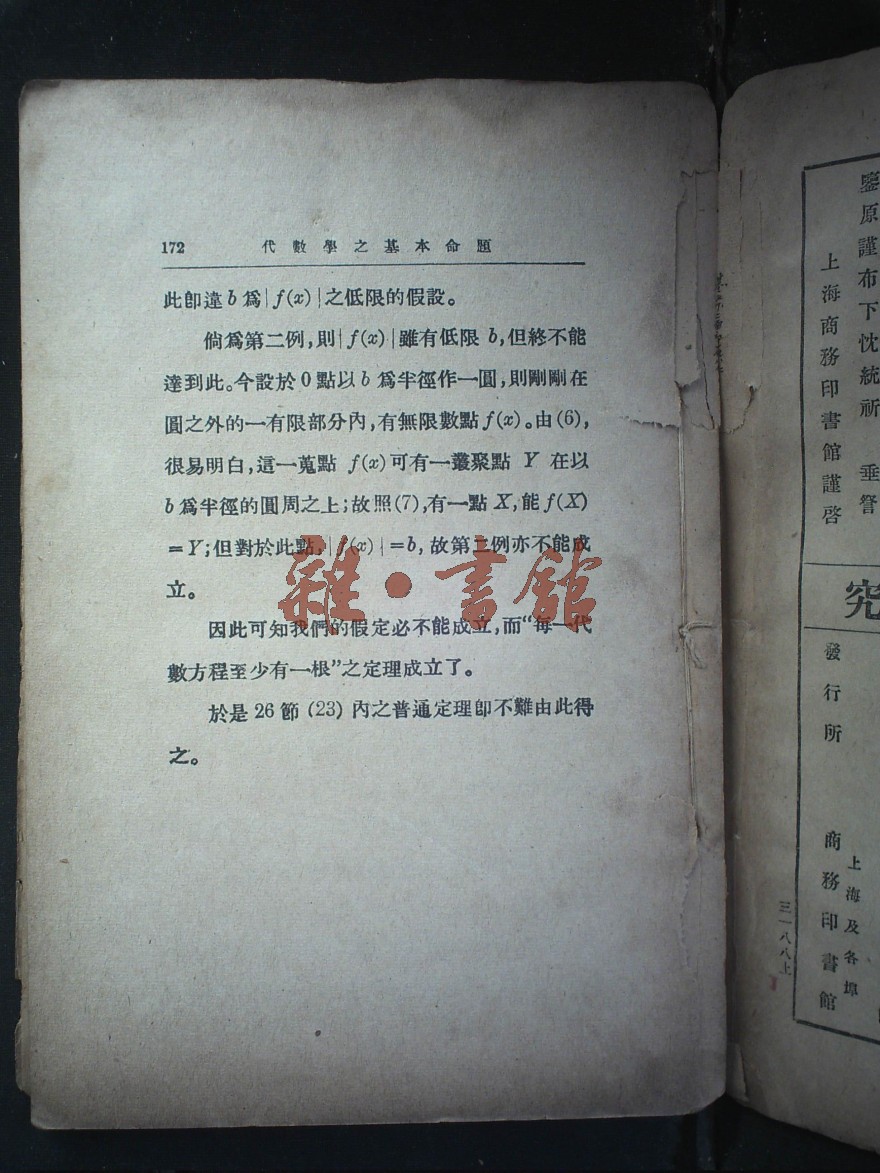 172 代數學之基本命題
此卽違 b 爲|f(x)|之低限的假設。
倘爲第二例,則|f(x)|雖有低限 b,但終不能
達到此。今設於 0 點以 b 爲半徑作一圓,則剛剛在
圓之外的一有限部分內,有無限數點 f(x)。由(6),
很易明白,這一蒐點 f(x)可有一叢聚點 Y 在以
b 爲半徑的圓周之上;故照(7),有一點 X,能 f(X)
=Y;但對於此點,|f(x)|=b, 故第二例亦不能成
立。
因此可知我們的假定必不能成立,而“每一代
數方程至少有一根”之定理成立了。
於是 26 節 (23) 內之普通定理卽不難由此得
之。
雜·書館
鑒原謹布下忱統祈 垂詧
上海商務印書館謹啓
究
發行所
上海及各埠
商務印書館
三一八八上